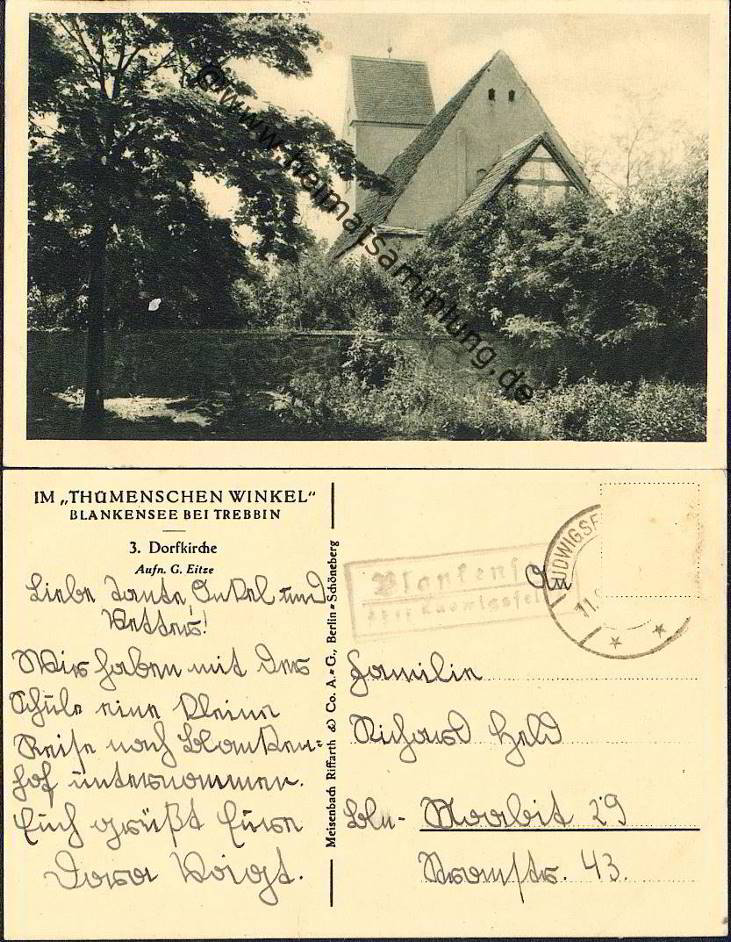 © www.heimatsammlung.de
IM „THÜMENSCHEN WINKEL“
BLANKENSEE BEI TREBBIN
3. Dorfkirche
Aufn. G. Eitze
Liebe Tante, Onkel und
Vetter!
Wir haben mit der
Schule eine kleine
Reise nach Blanken=
hof unternommen.
Euch grüßt Eure
Dora Voigt.
Meisenbach Riffarth & Co. A.=G., Berlin=Schöneberg
Blankens
über Ludwigsfel
UDWIGSF
11.
An
Familie
Richard Held
Bln- Moabit